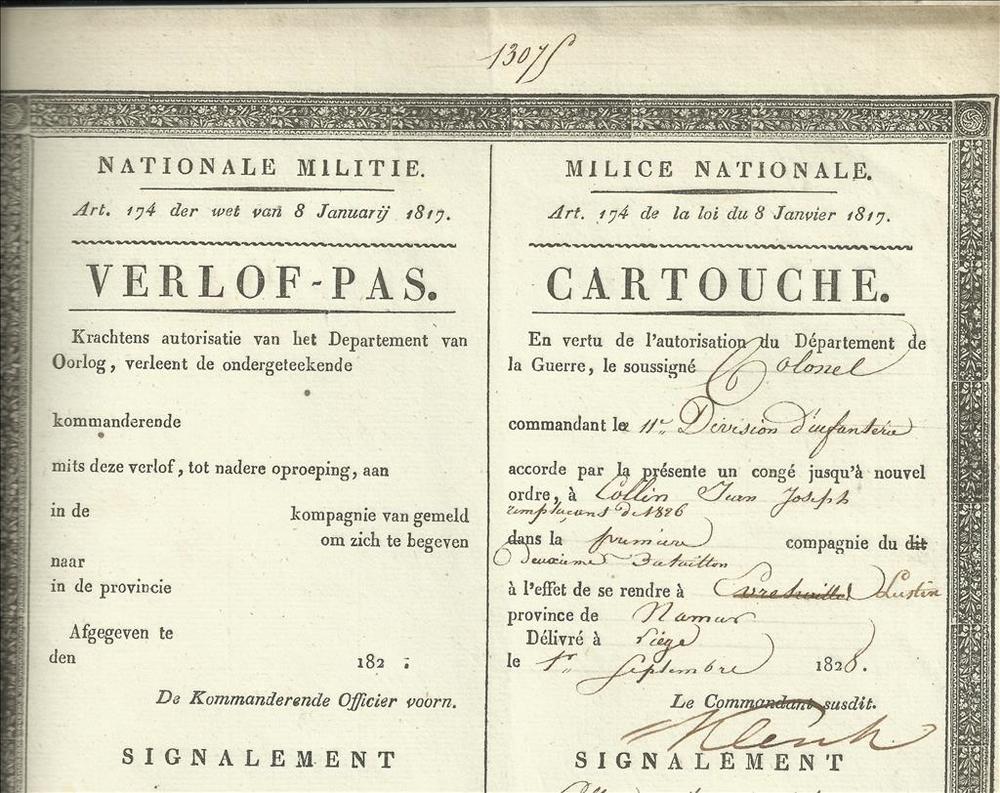 1307
NATIONALE MILITIE.
Art. 174 der wet van 8 Januarij 1817.
VERLOF-PAS.
Krachtens autorisatie van het Departement van
Oorlog, verleent de ondergeteekende
kommanderende
mits deze verlof, tot nadere oproeping, aan
in de kompagnie van gemeld
om zich te begeven
naar
in de provincie
Afgegeven te
den 182 .
De Kommanderende Officier voorn.
SIGNALEMENT
MILICE NATIONALE.
Art. 174 de la loi du 8 Janvier 1817.
CARTOUCHE.
En vertu de l'autorisation du Département de
la Guerre, le soussigné Colonel
commandant la 11e Division d'infanterie
accorde par la présente un congé jusqu'à nouvel
ordre, à Collin Jean Joseph
remplaçant de 1826
dans la première compagnie du dit
Deuxième Bataillon
à l'effet de se rendre à Lustin
province de Namur
Délivré à Liége
le 1er Septembre 1828.
Le Commandant susdit.
SIGNALEMENT